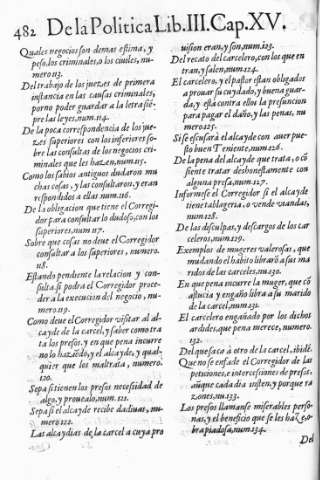 482 De la Politica Lib. III. Cap. XV.
Quales negocios son de mas estima, y
peso, los criminales, o los ciuiles, nu-
mero 113.
Del trabajo de los juezes de primera
instancia en las causas criminales,
por no poder guardar a la letra siẽ-
pre las leyes, num. 114.
De la poca correspondencia de los jue-
zes superiores con los inferiores so-
bre las consultas de los negocios cri-
minales que les hazen, num. 115.
Como los sabios antiguos dudaron mu
chas cosas, y las consultaron, y eran
respondidos a ellas num. 116.
De la obligacion que tiene el Corregi-
dor para consultar lo dudoso, con los
superiores, num. 117.
Sobre que cosas no deue el Corregidor
consultar a los superiores, numero.
118.
Estando pendiente la relacion y con-
sulta, si podra el Corregidor proce-
der a la execucion del negocio, nu-
mero 119.
Como deue el Corregidor visitar al al-
cayde de la carcel, y saber como tra
ta los presos, y en que pena incurre
no lo haziẽdo, y el alcayde, y qual-
quier que los maltrata, numero.
120.
Sepa si tienen los presos necessidad de
algo, y prouealo, num. 121.
Sepa si el alcayde recibe dadiuas, nu-
mero 122.
Las alcaydias de la carcel a cuya pro
uision eran, y son, num. 123.
Del recato del carcelero, con los que en
tran, y salen, num. 124.
El carcelero, y el pastor estan obligados
a prouar su cuydado, y buena guar-
da, y està contra ellos la presuncion
para pagar el daño, y las penas, nu
mero 125.
Si se escusarà el alcayde con auer pue-
sto buen Teniente, num. 126.
De la pena del alcayde que trata, o cõ
siente tratar deshonestamente con
alguna presa, num. 127.
Informese el Corregidor si el alcayde
tiene tablageria, o vende viandas,
num. 128.
De las disculpas, y descargos de los car
celeros, num. 129.
Exemplos de mugeres valerosas, que
mudando el habito libraron a sus ma
ridos de las carceles, nu. 130.
En que pena incurre la muger, que cõ
astucia y engaño libra a su marido
de la carcel, num. 131.
El carcelero engañado por los dichos
ardides, que pena merece, numero.
132.
Del que saca a otro de la carcel, ibidẽ.
Que no se enfade el Corregidor de las
peticiones, e intercessiones de presos,
aũque cada dia insten, y porque ra
zones, nu. 133.
Los presos llamanse miserables perso-
nas, y el beneficio que se les haze, o-
bra piadosa, num. 134.
Del